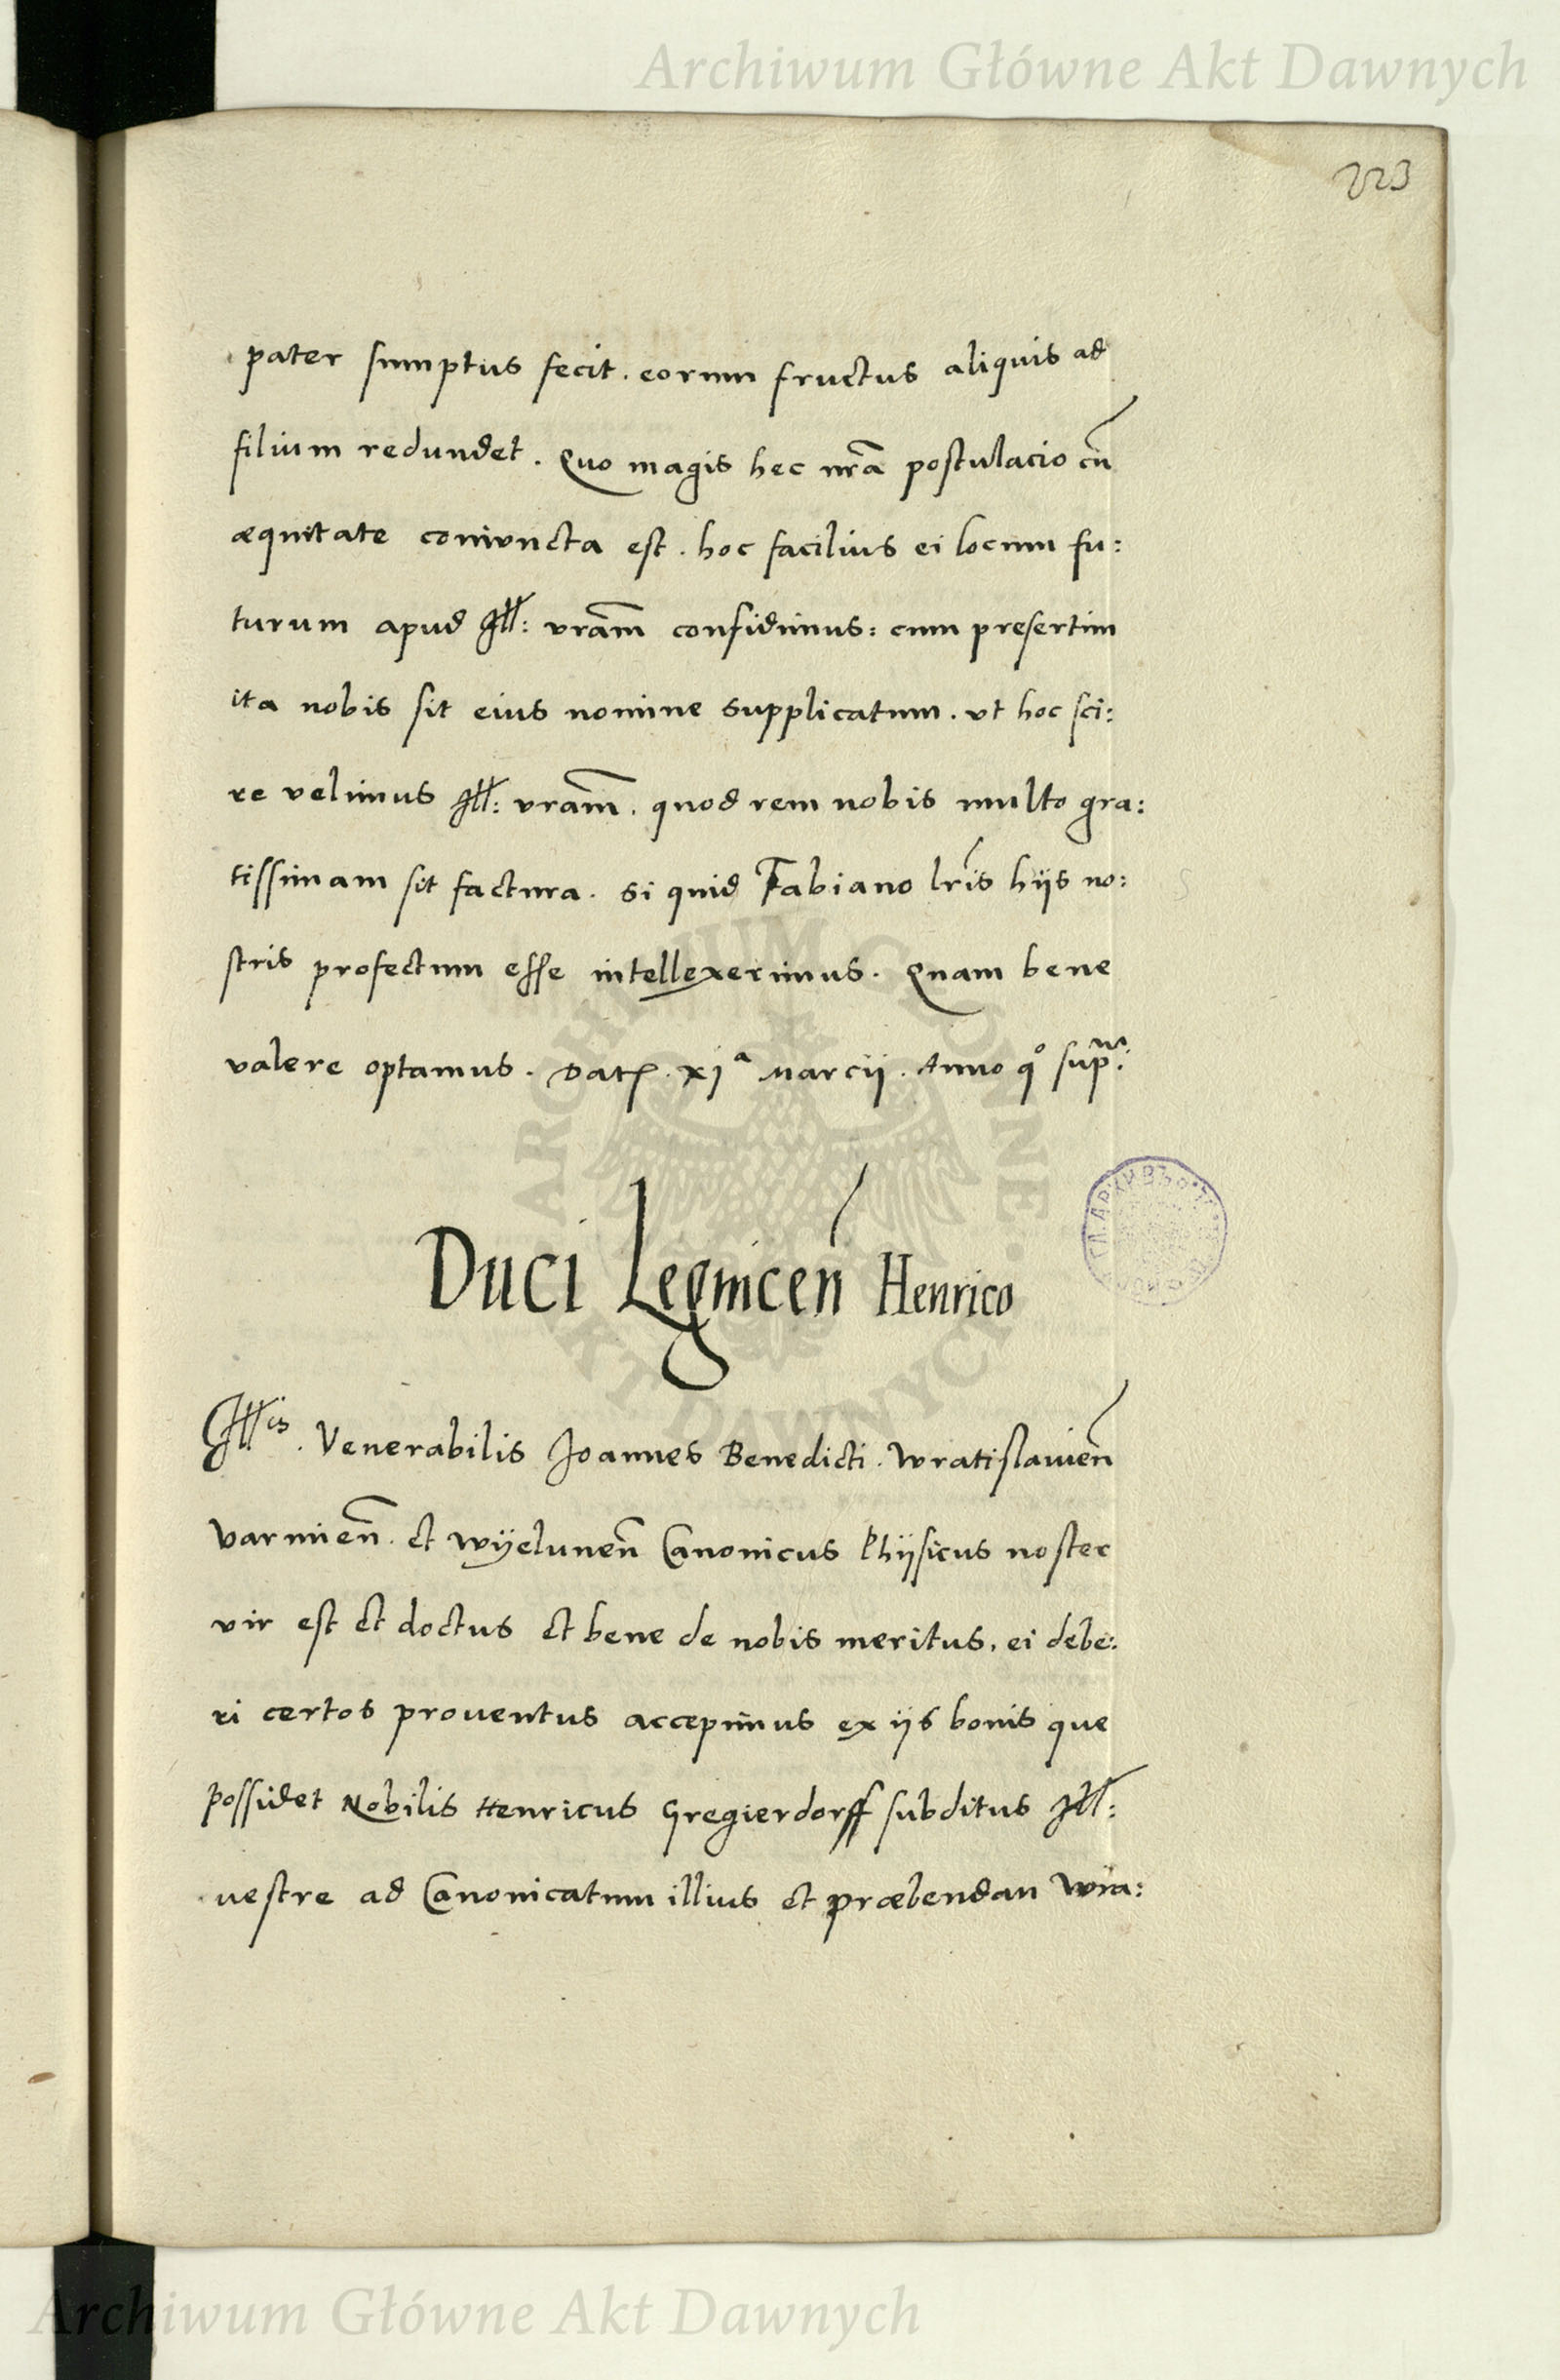 Archiwum Główne Akt Dawnych
223
pater sumptus fecit. eorum fructus aliquis ad
filium redundet. Quo magis hec nr̃a postulacio cũ
æquitate coniuncta est. hoc facilius ei locum fu:
turum apud Ill: vrãm confidimus: cum presertim
ita nobis sit eius nomine supplicatum. vt hoc sci:
re velimus Ill: vrãm. quod rem nobis multo gra:
tissimam sit factura. si quid Fabiano lr̃is hijs no:
stris profectum esse intellexerimus. Quam bene
valere optamus. Dat. XJª Marcij. Anno qº supª:
Duci Legnicen̄ Henrico
Illis. Venerabilis Joannes Benedicti. Wratislauien̄
Varmien̄. et Wyelunen̄ Canonicus Phijsicus noster
vir est et doctus et bene de nobis meritus, ei debe:
ri certos prouentus accepimus ex ijs bonis que
possidet Nobilis Henricus Gregierdorff subditus Ill:
uestre ad Canonicatum illius et præbendan Wra:
ARCHIWUM GŁÓWNE AKT DAWNYCH
Archiwum Główne Akt Dawnych